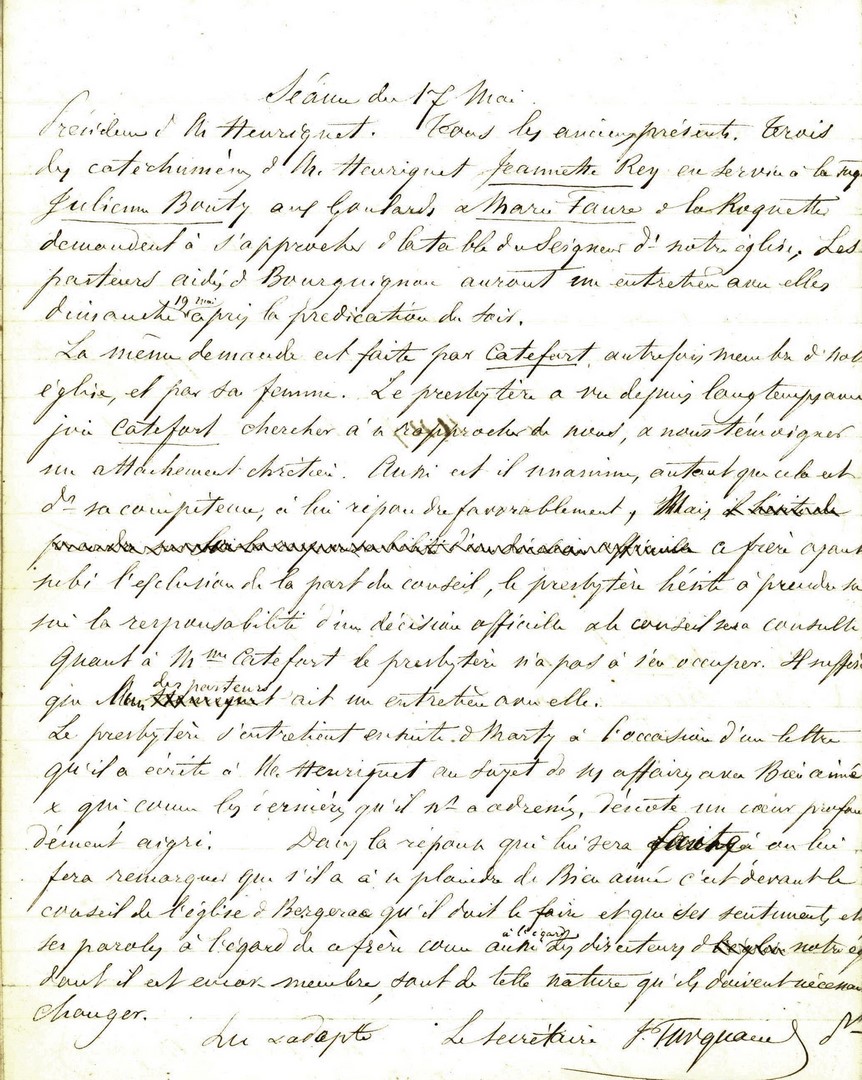 Séance du 17 Mai.
Présidence d Mr Henriquet. Tous les anciens présents. Trois
des catéchumènes d Mr Henriquet Jeannette Rey en service à la
Julienne Bouty aux Goulards & Marie Faure d la Roquette
demandent à s'approcher d la table du Seigneur ds notre église. Les
pasteurs aidés d Bourguignon auront un entretien avec elles
dimanche 19 mai après la prédication du soir.
La même demande est faite par Catefort, autrefois membre d notre
église, et par sa femme. Le presbytère a vu depuis longtemps avec
joie Catefort chercher à se rapprocher de nous, & nous témoigner
un attachement chrétien. Aussi est il unanime, autant que cela est
ds sa compétence, à lui répondre favorablement, Mais il hésite de
prendre sur lui la responsabilité d'une décision officielle ce frère ayant
subi l'exclusion de la part du conseil, le presbytère hésite à prendre sur
soi la responsabilité d'une décision officielle & le conseil sera consulté
Quant à Mme Catefort le presbytère n'a pas à s'en occuper. Il suffira
que Mr Henriquet des pasteurs ait un entretien avec elle.
Le presbytère s'entretient ensuite d Marty à l'occasion d'une lettre
qu'il a écrite à Mr Henriquet au sujet de ses affaires avec Bien aimé
& qui comme les dernières qu'il ns a adressées, dénote un cœur profon
dément aigri. Dans la réponse qui lui sera faite on lui
fera remarquer que s'il a à se plaindre de Bien aimé c'est devant le
conseil de l'église d Bergerac qu'il doit le faire et que ses sentiments et
ses paroles à l'égard de ce frère comme aussi à l'égard des directeurs d l'église notre ég
dont il est encore membre, sont de telle nature qu'ils doivent nécessai
changer.
Lu & adopté Le secrétaire J. Turquand